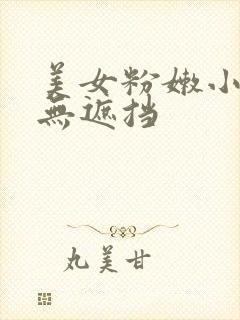 美女粉嫩小
無遮挡
丸美甘